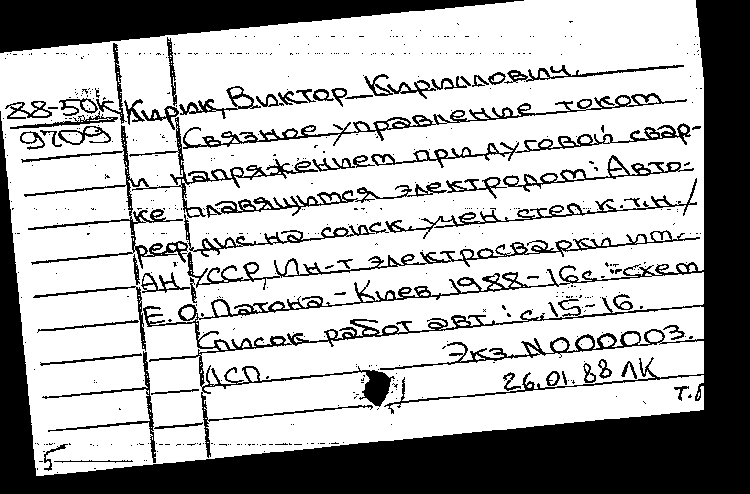 88-50К Кирик, Виктор Кириллович.
9709 Связное управление током
и напряжением при дуговой свар-
ке плавящимся электродом: Авто-
реф. дис. на соиск. учен. степ. к.т.н./
АН УССР, Ин-т электросварки им.
Е. О. Патона.-Киев, 1988.-16с.:схем
Список работ авт.: с.15-16.
ДСП. Экз. N000003.
26.01.88 ЛК
5